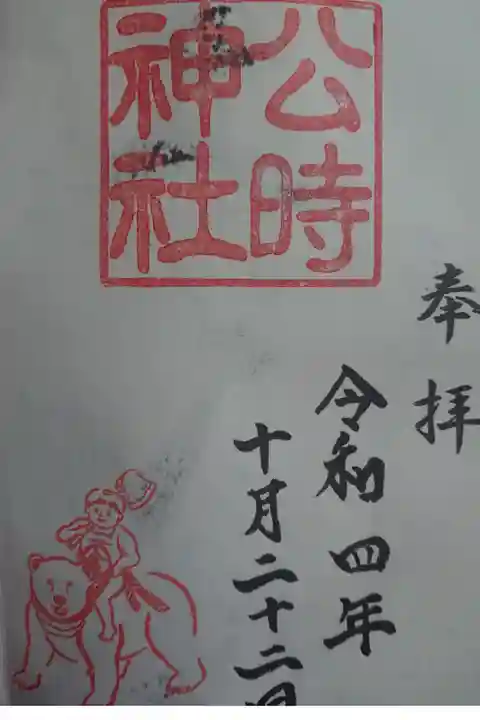 奉拝
令和四年
十月二十二日
公時
神社